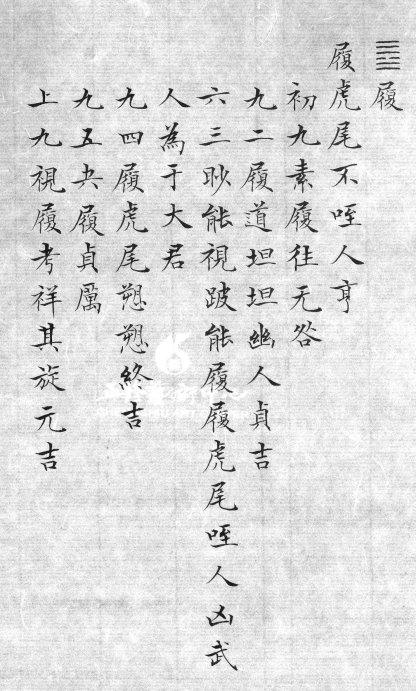 ䷉履
履虎尾不咥人亨
初九素履往无咎
九二履道坦坦幽人貞吉
六三眇能視跛能履履虎尾咥人凶武
人為于大君
九四履虎尾愬愬終吉
九五夬履貞厲
上九視履考祥其旋元吉